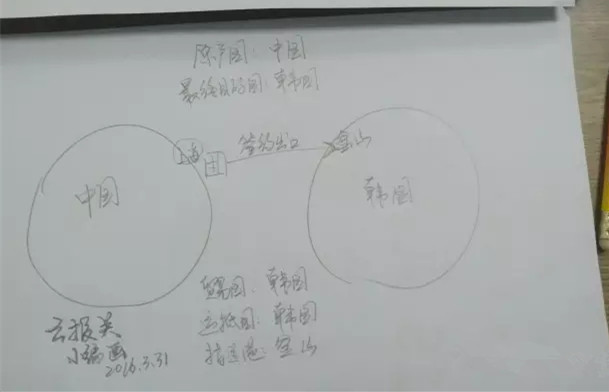 原产国：中国
最终目的国：韩国
签约出口
釜山
中国
韩国
贸易国：韩国
运抵国：韩国
指运港：釜山
云报关
小编画
2016.3.31